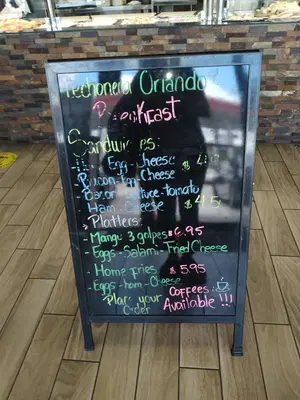 Lechonera Orlando
Breakfast
Sandwiches:
Egg-Cheese $
Bacon-Egg-Cheese
-Bacon-lettuce-tomato
-Ham-Cheese $4.5
-Platters-
-Mangu 3 golpes $6.95
-Eggs-Salami-Fried Cheese
-Home fries $5.95
-Eggs-ham-Cheese
Place your Order
Coffees
Available !!!